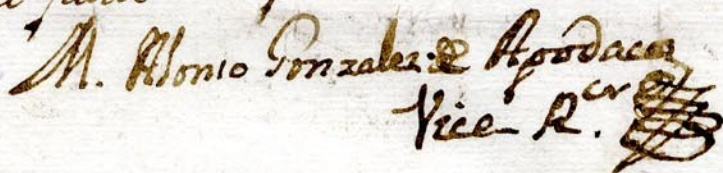 M. Alonso Gonzalez de Apodaca
Vice R.